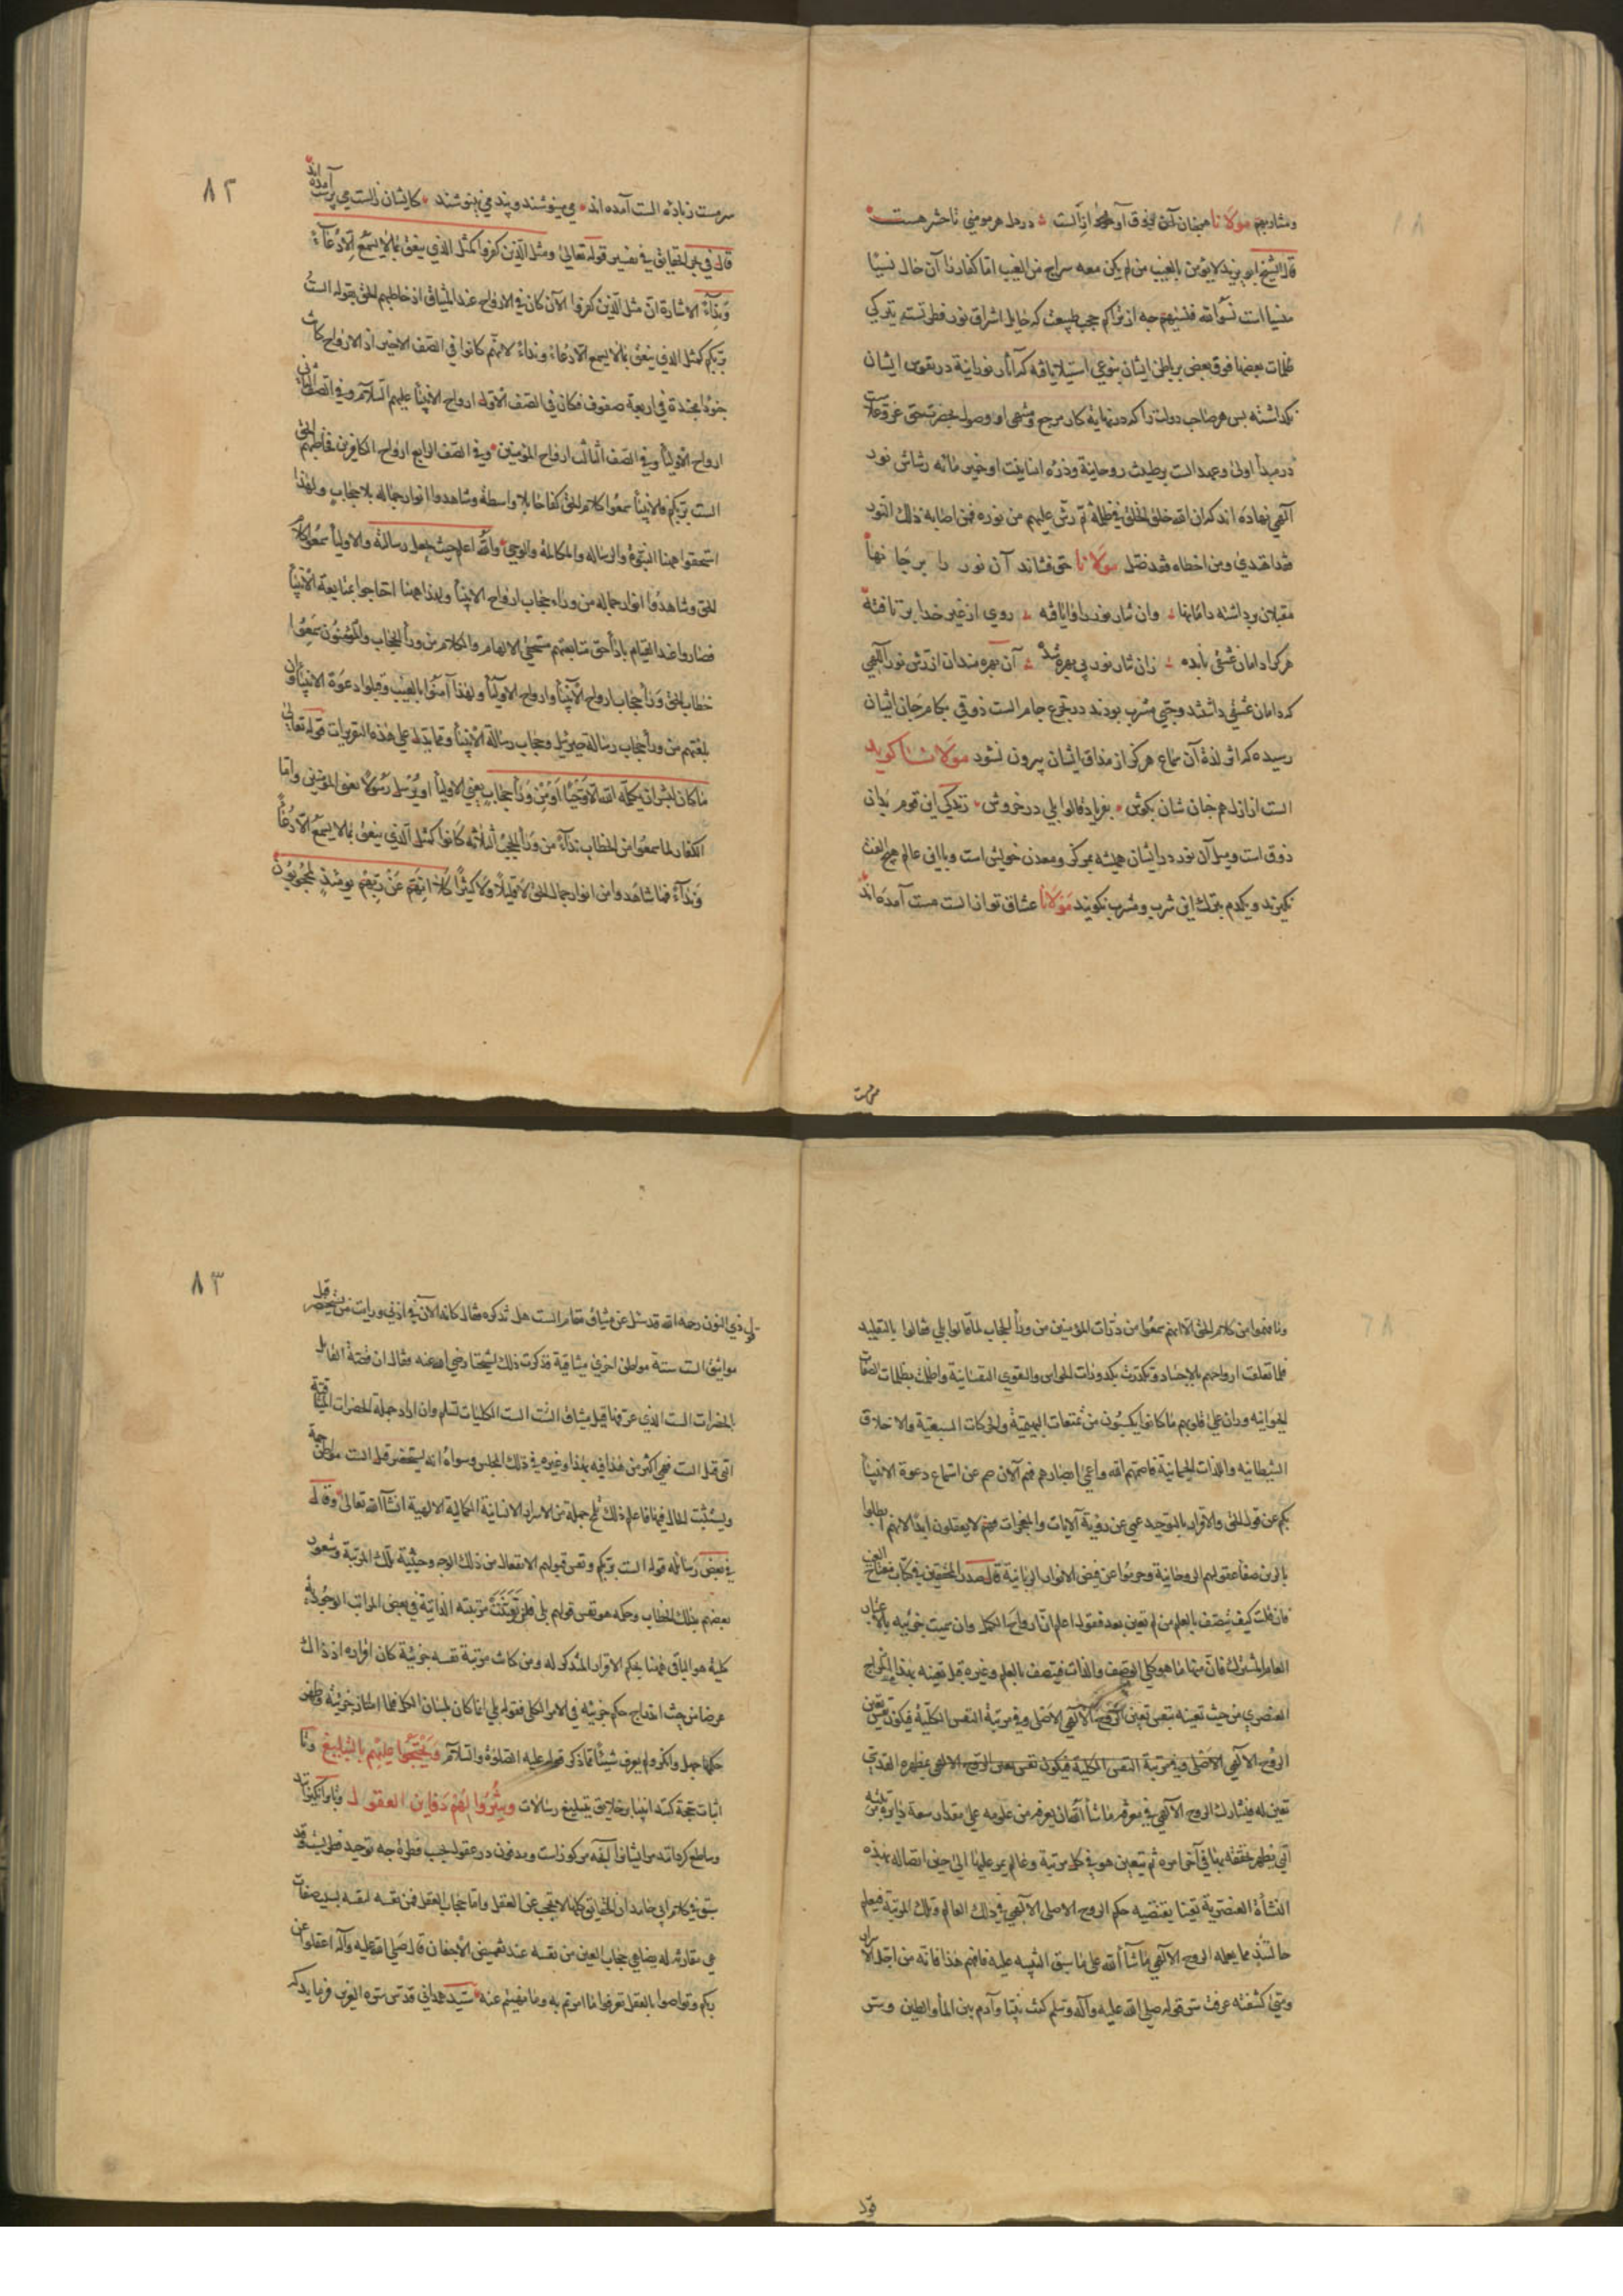 ومشاربهم مولانا همچنان آن ذوق آواز الست در دل هر مومنی تا حشر هست
قال الشیخ ابو یزید لا یؤمن بالغیب من لم یکن معه سراج من الغیب اما کفار را آن حال نسیا
منسیا است نسوا الله فنسیهم چه از تراکم حجب طبیعت که حایل اشراق نور فطرتست بترکی
ظلمات بعضها فوق بعض بر باطن ایشان بنوعی استیلا یافته که آثار نورانیة در نفوس ایشان
نگذاشته پس هر صاحب دولت را که در نهایة کار مرجع و منتهی او وصول بحضرت
در مبدأ اولی و عهد الست بر طینت روحانیة و ذره انسانیت او خمیر مایه رشاش نور
آلهی نهاده اند که ان الله خلق الخلق فی ظلمة ثم رش علیهم من نوره فمن اصابه ذلک النور
فقد اهتدی و من اخطاه فقد ضل مولانا حق فشاند آن نور را بر جانها
مقبلان برداشته دامانها وان نثار نور را وا یافته روی از غیر خدا بر تافته
هر کرا دامان عشقی نابده زان نثار نور بی بهره شده آن بهره مندان از رش نور آلهی
که دامان عشقی داشتند و حق مشرب بودند در تجرع جام الست ذوقی بکام جان ایشان
رسیده که اثر لذة آن سماع هرگز از مذاق ایشان بیرون نشود مولانا گوید
الست از ازل همچنان شان بگوش بفریاد قالوا بلی در خروش زندگی این قوم بدان
ذوق است و میل آن نور در ایشان همیشه بمرکز و معدن خویش است و با این عالم هیچ الفت
نگیرند و یکدم بترک این شرب و مشرب نگویند مولانا عشاق تو از الست مست آمده اند
سر مست
سر مست زباده الست آمده اند می مینوشند و پند می ننوشند کایشان ز الست می پرست آمده اند
قال فی بحر الحقایق فی تفسیر قوله تعالی ومثل الذین کفروا کمثل الذی ینعق بما لا یسمع الا دعآء
ونداء الاشارة ان مثل الذین کفروا الآن کان فی الارواح عند المیثاق اذ خاطبهم الحق بقوله الست
بربکم کمثل الذی ینعق بما لا یسمع الا دعاء ونداء لانهم کانوا فی الصف الاخیر اذ الارواح کانت
جنودا مجندة فی اربعة صفوف فکان فی الصف الاول ارواح الانبیآ علیهم السلام وفی الصف الثانی
ارواح الاولیآ وفی الصف الثالث ارواح المؤمنین وفی الصف الرابع ارواح الکافرین فخاطبهم الحق
الست بربکم فالانبیآ سمعوا کلام الحق کفاحا بلا واسطة وشاهدوا انوار جماله بلا حجاب ولهذا
استحقوا ههنا النبوة والرساله والمکالمة والوحی والله اعلم حیث یجعل رسالته والاولیآ سمعوا کلام
الحق وشاهدوا انوار جماله من وراء حجاب ارواح الانبیآ ولهذا ههنا احتاجوا بمتابعة الانبیآ
فصاروا عند القیام باداء حق متابعتهم مستحقی الالهام والکلام من ورآ الحجاب والمؤمنون سمعوا
خطاب الحق ورآ حجاب ارواح الانبیآ وارواح الاولیآ ولهذا آمنوا بالغیب وقبلوا دعوة الانبیآ وان
بلغتهم من ورآ حجاب رسالة جبرئیل وحجاب رسالة الانبیآ ومما یدل علی هذه التقریرات قوله تعالی
ما کان لبشر ان یکلمه الله الا وحیا او من ورآ حجاب یعنی الاولیآ او یرسل رسولا یعنی المؤمنین واما
الکفار لما سمعوا من الخطاب ندآء من ورآ الحجب الثلاثه کانوا کمثل الذی ینعق بما لا یسمع الا دعآء
وندآء فما شاهدوا من انوار جمال الحق لا قلیلا ولا کثیرا کلا انهم عن ربهم یومئذ لمحجوبون
٨٢
وما فهموا من کلام الحق الا انهم سمعوا من ذرات المؤمنین من ورآ الحجاب لما قالوا بلی فقالوا بالتقلید
فلما تعلقت ارواحهم بالاجساد وتکدرت بکدورات الحواس والقوی النفسانیة واظلت بظلمات الصفات
الحیوانیه وران علی قلوبهم ما کانوا یکسبون من تمتعات البهیمیة والحرکات السبعیة والاخلاق
الشیطانیه واللذات الجسمانیة فاصمهم الله واعمی ابصارهم فهم آلان صم عن استماع دعوة الانبیآ
بکم عن قول الحق والاقرار بالتوحید عمی عن رؤیة الآیات والمعجزات فهم لا یعقلون ابدا لانهم ابطلوا
بالرین صفآء عقولهم الروحانیة وحرموا عن فیض الانوار الربانیة قال صدر المحققین فی کتاب مفتاح الغیب
فان قلت کیف یتصف بالعلم من لم یتعین بعد فنقول اعلم ان ارواح الکمل وان سمیت جزئیه بالاعتبار
العام المشترک فان منها ما هو کلی الوصف والذات فیتصف بالعلم وغیره قبل تعینه بهذا المزاج
العنصری من حیث تعینه بنفس تعین الروح الآلهی الاصلی وفی مرتبة النفس الکلیة فیکون نفس تعین
الروح الالهی الاصلی وفی مرتبة النفس الکلیة فیکون نفس تعین الروح الالهی بمظهره القدسی
تعین له فیشارک الروح الآلهی فی معرفة ما شآ الله ان یعرفه من علومه علی مقدار سعة دایرة مرتبته
التی یظهر تحققه بها فی آخر امره ثم یتعین هو فی کل مرتبة وعالم یمر علیها الی حین اتصاله بهذه
النشأة العنصریة تعینا یقتضیه حکم الروح الاصلی الآلهی فی ذلک العالم وتلک المرتبة فیعلم
حالتئذ مما یعلمه الروح الآلهی ما شآء الله علی ما سبق التنبیه علیه فافهم هذا فانه من اجل الاسرار
ومتی کشفته عرفت سر قوله صلی الله علیه وآله وسلم کنت نبیا وآدم بین المآء والطین وسر
قول
قول ذی النون رحمه الله قد سئل عن میثاق مقام الست هل تذکره فقال کانه الآن فی اذنی ورایت من یستحضر قبل
مواثیق الست ستة مواطن اخری میثاقیة فذکرت ذلک لشیخنا رضی الله عنه فقال ان قصد القایل
الحضرات الست الذی عرفها قبل میثاق الست الست الکلیات فسلم وان اراد جملة الحضرات المیثاقیة
التی قبل الست فهی اکثر من هذا فنبه بهذا وغیره فی ذلک المجلس وسواه انه یستحضر قبل الست مواطن جمة
ویستثبت الحال فیها فاعلم ذلک تلمح جملة من الاسرار الانسانیة الکمالیة الالهیة انشآ الله تعالی وقال
فی بعض رسائله قوله الست بربکم ونفس قبولهم الانفعال من ذلک الوجه وحیثیة تلک المرتبة وشعور
بعضهم بذلک الخطاب وحکمه هو نفس قولهم بلی فلمن تعینت مرتبته الذاتیة فی بعض المراتب الوجودیة
کلیة هو الباقی فهنا بحکم الاقرار المذکور له ومن کانت مرتبة نفسه جزئیة کان اقراره اذ ذاک
عرضا من حیث اندماج حکم جزئیته فی الامر الکلی فقوله بلی انما کان بلسان الکل فلما امتاز بجزئیته وظهر
حکمها جهل وانکر ولم یعرف شیئا مما ذکر قوله علیه الصلوة والسلام ویحتجوا علیهم بالتبلیغ وتا
اثبات حجة کنند انبیا بر خلایق بتبلیغ رسالات ویثیروا لهم دفاین العقول
وساطع کردانند مر ایشانرا آنچه مرکوز است و مدفون در عقول بحسب فطرة چه توحید فطریست وقد
سبق فی کلام ابی حامد ان الحقایق کلها لا تحتجب عن العقل واما حجاب العقل فمن نفسه لنفسه بسبب صفات
هی مقارنة له یضاهی حجاب العین من نفسه عند تغمیض الاجفان قال صلی الله علیه وآله اعقلوا عن
ربکم وتواصوا بالعقل تعرفوا ما امرتم به وما نهیتم عنه سید همدانی قدس سره العزیز فرماید که
٨٣